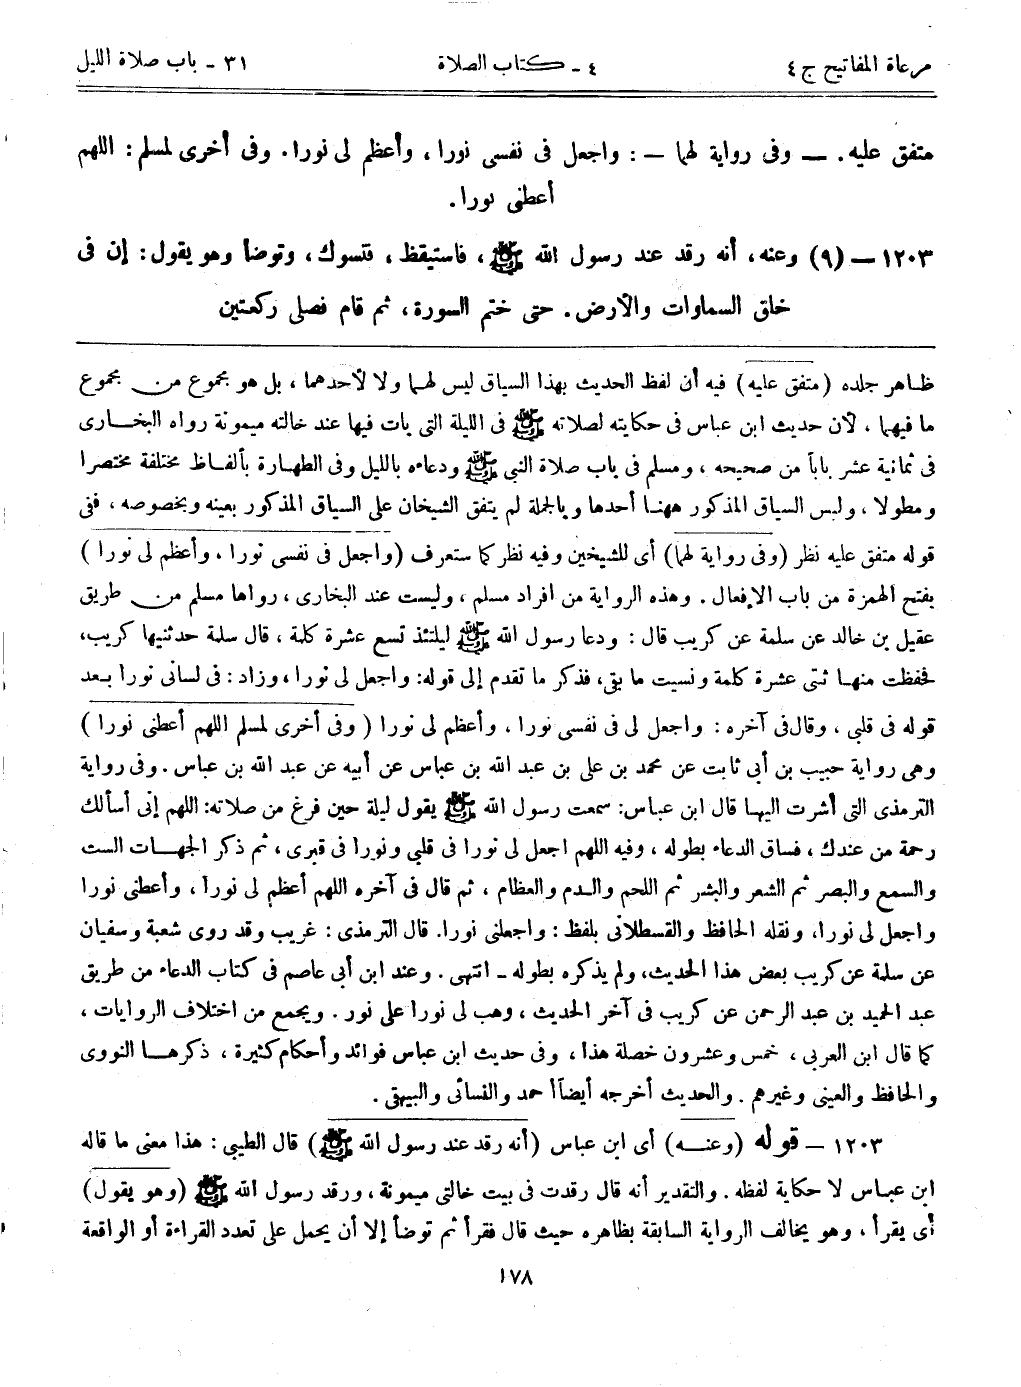 مرعاة المفاتيح ج ٤ ٤ - كتاب الصلاة ٣١ - باب صلاة الليل
متفق عليه. — وفى رواية لهما — : واجعل فى نفسى نورا، وأعظم لى نورا. وفى أخرى لمسلم: اللهم
أعطنى نورا.
١٢٠٣ — (٩) وعنه، أنه رقد عند رسول الله ﷺ، فاستيقظ، فتسوك، وتوضأ وهو يقول: إن فى
خلق السماوات والأرض. حتى ختم السورة، ثم قام فصلى ركعتين
ظاهر جلده (متفق عليه) فيه أن لفظ الحديث بهذا السياق ليس لهما ولا لأحدهما، بل هو مجموع من مجموع
ما فيهما، لأن حديث ابن عباس فى حكايته لصلاته ﷺ فى الليلة التى بات فيها عند خالته ميمونة رواه البخارى
فى ثمانية عشر باباً من صحيحه، ومسلم فى باب صلاة النبى ﷺ ودعاءه بالليل وفى الطهارة بألفاظ مختلفة مختصرا
ومطولا، وليس السياق المذكور ههنا أحدها وبالجملة لم يتفق الشيخان على السياق المذكور بعينه وبخصوصه، ففى
قوله متفق عليه نظر (وفى رواية لهما) أى للشيخين وفيه نظر كما ستعرف (واجعل فى نفسى نورا، وأعظم لى نورا)
بفتح الهمزة من باب الإفعال. وهذه الرواية من افراد مسلم، وليست عند البخارى، رواها مسلم من طريق
عقيل بن خالد عن سلمة عن كريب قال: ودعا رسول الله ﷺ ليلتئذ تسع عشرة كلمة، قال سلمة حدثنيها كريب،
فحفظت منها ثنتى عشرة كلمة ونسيت ما بقى، فذكر ما تقدم إلى قوله: واجعل لى نورا، وزاد: فى لسانى نورا بعد
قوله فى قلبى، وقال فى آخره: واجعل لى فى نفسى نورا، وأعظم لى نورا (وفى أخرى لمسلم اللهم أعطنى نورا)
وهى رواية حبيب بن أبى ثابت عن محمد بن على بن عبد الله بن عباس عن أبيه عن عبد الله بن عباس. وفى رواية
الترمذى التى أشرت اليها قال ابن عباس: سمعت رسول الله ﷺ يقول ليلة حين فرغ من صلاته: اللهم إنى أسألك
رحمة من عندك، فساق الدعاء بطوله، وفيه اللهم اجعل لى نورا فى قلبى ونورا فى قبرى، ثم ذكر الجهات الست
والسمع والبصر ثم الشعر والبشر ثم اللحم والدم والعظام، ثم قال فى آخره اللهم أعظم لى نوراً، وأعطنى نورا
واجعل لى نورا، ونقله الحافظ والقسطلانى بلفظ: واجعلنى نورا. قال الترمذى: غريب وقد روى شعبة وسفيان
عن سلمة عن كريب بعض هذا الحديث، ولم يذكره بطوله - انتهى. وعند ابن أبى عاصم فى كتاب الدعاء من طريق
عبد الحميد بن عبد الرحمن عن كريب فى آخر الحديث، وهب لى نورا على نور. ويجمع من اختلاف الروايات،
كما قال ابن العربى، خمس وعشرون خصلة هذا، وفى حديث ابن عباس فوائد وأحكام كثيرة، ذكرها النووى
والحافظ والعينى وغيرهم. والحديث أخرجه أيضاً أحمد والنسائى والبيهقى.
١٢٠٣ — قوله (وعنه) أى ابن عباس (أنه رقد عند رسول الله ﷺ) قال الطيبى: هذا معنى ما قاله
ابن عباس لا حكاية لفظه. والتقدير أنه قال رقدت فى بيت خالتى ميمونة، ورقد رسول الله ﷺ (وهو يقول)
أى يقرأ، وهو يخالف الرواية السابقة بظاهره حيث قال فقرأ ثم توضأ إلا أن يحمل على تعدد القراءة أو الواقعة
١٧٨